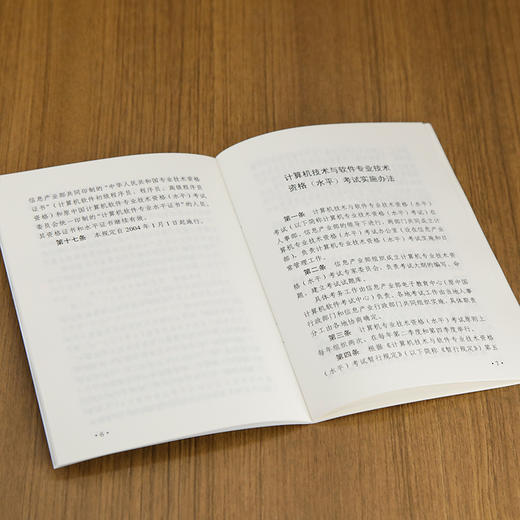 信息产业部共同印制的“中华人民共和国专业技术资格
证书”(计算机软件初级程序员、程序员、高级程序员
资格)和原中国计算机软件专业技术资格(水平)考试
委员会统一印制的“计算机软件专业水平证书”的人员,
其资格证书和水平证书继续有效。
第十七条 本规定自2004年1月1日起施行。
·6·
计算机技术与软件专业技术
资格(水平)考试实施办法
第一条 计算机技术与软件专业技术资格(水平)
考试(以下简称计算机专业技术资格(水平)考试)在
人事部、信息产业部的领导下进行,两部门共同成立计
算机专业技术资格(水平)考试办公室(设在信息产业
部),负责计算机专业技术资格(水平)考试实施和日
常管理工作。
第二条 信息产业部组织成立计算机专业技术资
格(水平)考试专家委员会,负责考试大纲的编写、命
题、建立考试试题库。
具体考务工作由信息产业部电子教育中心(原中国
计算机软件考试中心)负责。各地考试工作由当地人事
行政部门和信息产业行政部门共同组织实施,具体职责
分工由各地协商确定。
第三条 计算机专业技术资格(水平)考试原则上
每年组织两次,在每年第二季度和第四季度举行。
第四条 根据《计算机技术与软件专业技术资格
(水平)考试暂行规定》(以下简称《暂行规定》)第五
·7·